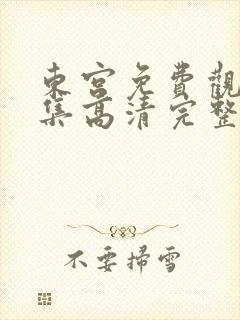 東宮免費觀
集高清完整
不要掃雪